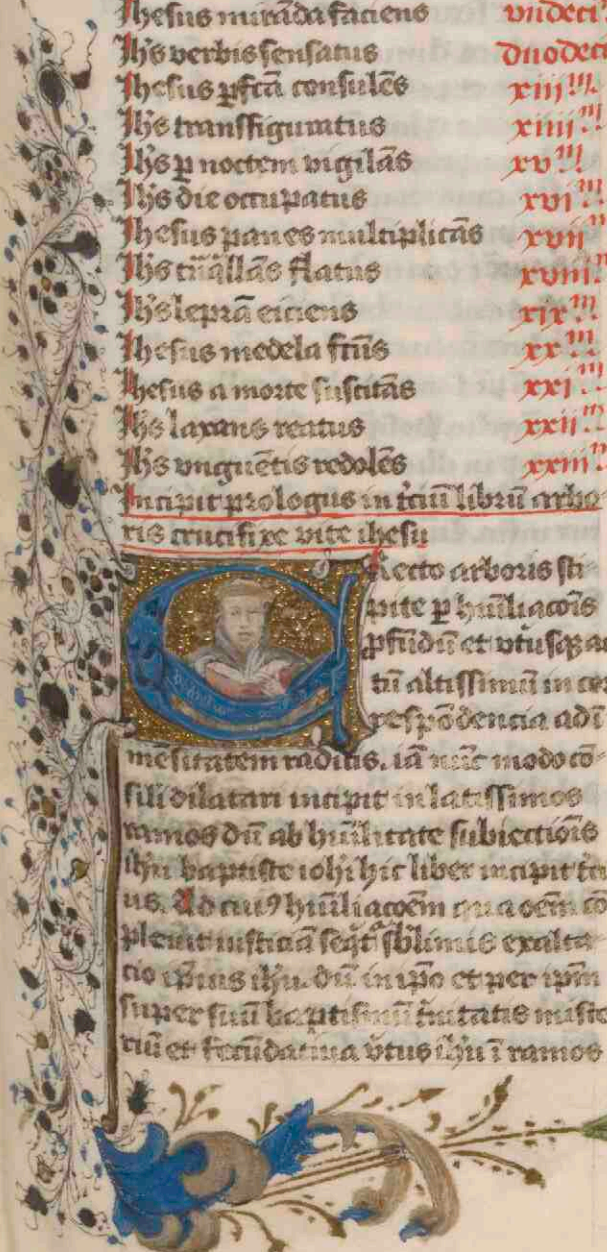 Ihesus mirāda faciens vndeci
Ih's verbis sensatus duodeci
Ihesus ꝑfc̄a consulēs xiiiᵐ
Ih's transfiguratus xiiiiᵐ
Ih's ꝑ noctem vigilās xvᵐ
Ih's die occupatus xviᵐ
Ihesus panes multiplicās xviiᵐ
Ih's flatus xviiiᵐ
Ih's leprā eiciens xixᵐ
Ihesus medela xxᵐ
Ihesus a morte suscitās xxiᵐ
Ih's laxans reatus xxiiᵐ
Ih's vnguētis redolēs xxiiiᵐ
Incipit prologus in t'ciū librū arbo
ris crucifixe vite ihesu
Erecto arboris sti
pite ꝑ hūiliac̄ois
ꝓfūdū et vtrūsqꝫ
tū altissimū in cor
respōdencia adī
mēsitatem radicis. iā nūc modo cō
sili dilatari incipit in latissimos
ramos dū ab hūilitate subiectiōis
ih'u baptiste ioh'i hic liber incipit t'ci
us. Ad cuiꝰ hūiliac̄oēm qua oēm cō
pleuit iusticiā seqͥtͬ sblimis exalta
cio ip̄ius ih'u. dū in ip̄o et per ip̄m
super suū baptismū t'nitatis miste
riū et fecūdatiua v'tus ih'u ī ramos